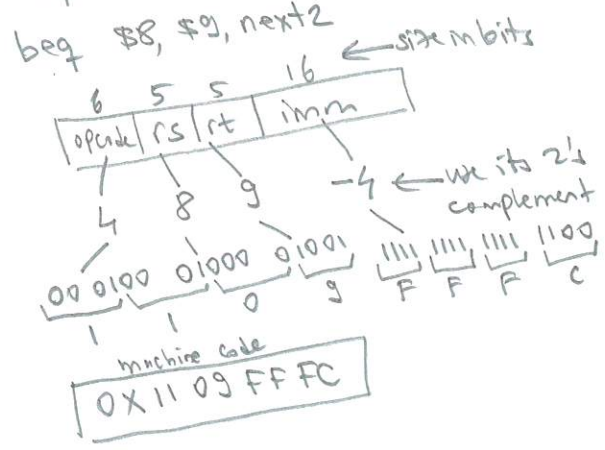 beq $8, $9, next2
6 5 5 16 ← size in bits
opcode rs rt imm
4 8 9 -4 ← use its 2's
complement
00 0100 01000 01001 1111 1111 1111 1100
1 1 0 9 F F F C
machine code
0X1109FFFC